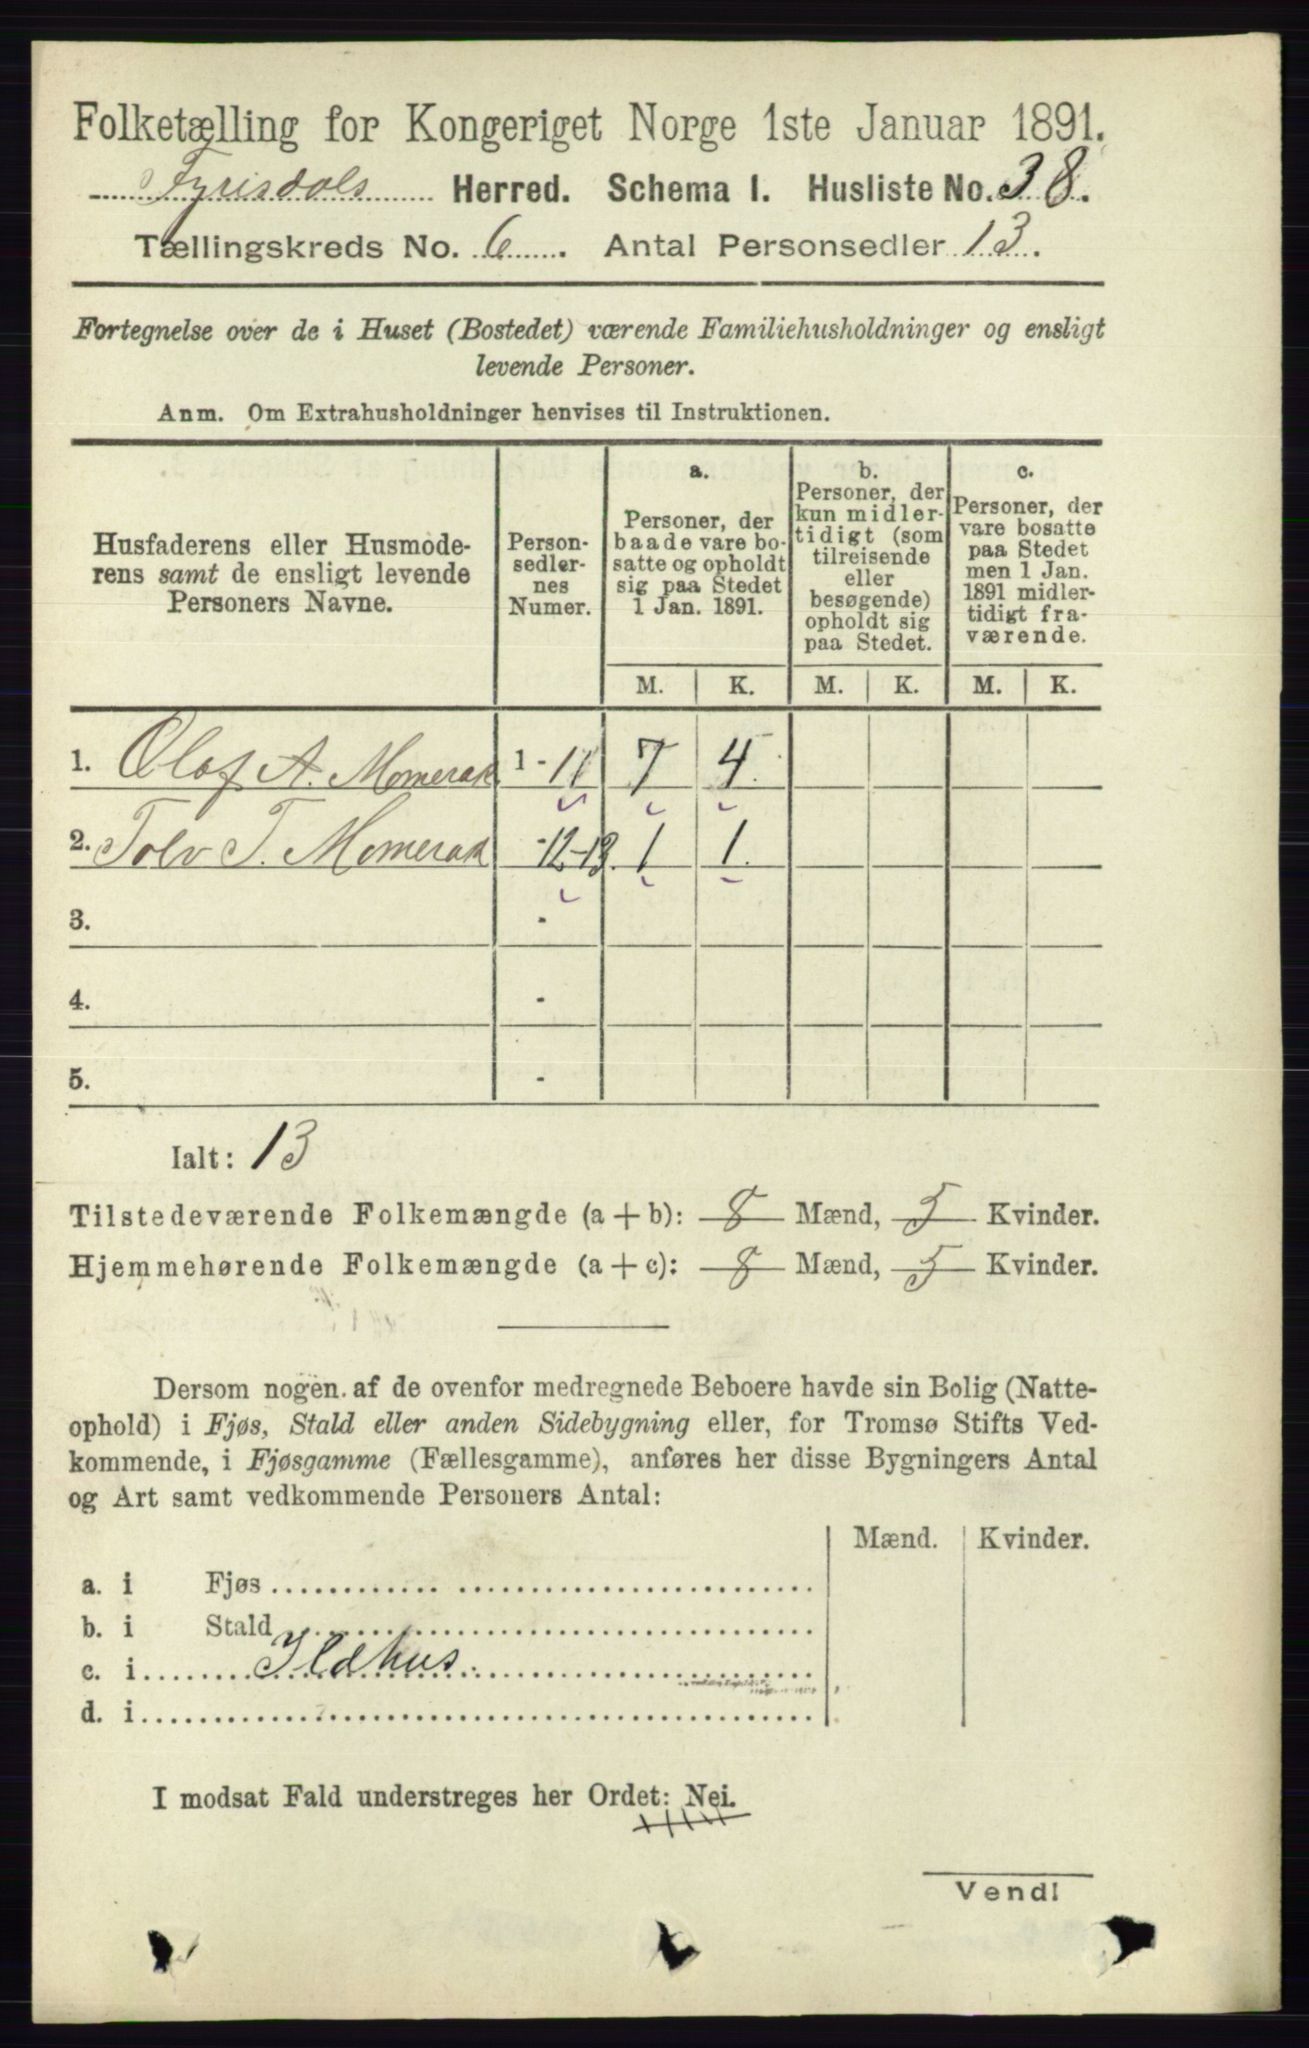 Folketælling for Kongeriget Norge 1ste Januar 1891.
Fyrisdals Herred. Schema I. Husliste No. 38.
Tællingskreds No. 6. Antal Personsedler 13.
Fortegnelse over de i Huset (Bostedet) værende Familiehusholdninger og ensligt
levende Personer.
Anm. Om Extrahusholdninger henvises til Instruktionen.
Husfaderens eller Husmode-
rens samt de ensligt levende
Personers Navne.
Person-
sedler-
nes
Numer.
a.
Personer, der
baade vare bo-
satte og opholdt
sig paa Stedet
1 Jan. 1891.
b.
Personer, der
kun midler-
tidigt (som
tilreisende
eller
besøgende)
opholdt sig
paa Stedet.
c.
Personer, der
vare bosatte
paa Stedet
men 1 Jan.
1891 midler-
tidigt fra-
værende.
M. K. M. K. M. K.
1. Olaf A. Momerak 1 - 11 7 4.
2. Tolv T. Momerak -12-13. 1 1.
3. -
4. -
5. -
Ialt: 13
Tilstedeværende Folkemængde (a + b): 8 Mænd, 5 Kvinder.
Hjemmehørende Folkemængde (a + c): 8 Mænd, 5 Kvinder.
Dersom nogen af de ovenfor medregnede Beboere havde sin Bolig (Natte-
ophold) i Fjøs, Stald eller anden Sidebygning eller, for Tromsø Stifts Ved-
kommende, i Fjøsgamme (Fællesgamme), anføres her disse Bygningers Antal
og Art samt vedkommende Personers Antal:
Mænd. Kvinder.
a. i Fjøs
b. i Stald
c. i Ildhus
d. i
I modsat Fald understreges her Ordet: Nei.
Vend!